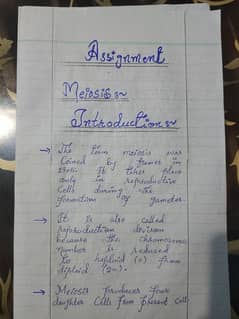 Assignment
Meiosis :~
Introduction :~
→ The term meiosis was
Coined by farmer in
1905. It takes place
only in reproductive
Cells during the
formation of gametes.
→ It is also called
reproduction divison
because the chromosome
number is reduced
to haploid (n) from
diploid (2n).
→ Meiosis Produces four
daughter Cells from present cell